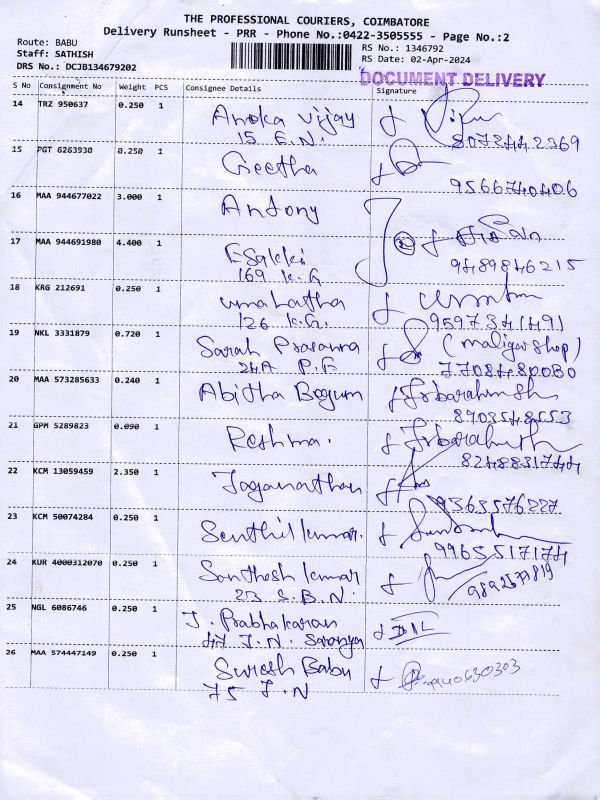 THE PROFESSIONAL COURIERS, COIMBATORE
Delivery Runsheet - PRR - Phone No.:0422-3505555 - Page No.:2
Route: BABU
Staff: SATHISH
DRS No.: DCJB134679202
RS No.: 1346792
RS Date: 02-Apr-2024
DOCUMENT DELIVERY
S No Consignment No Weight PCS Consignee Details Signature
14 TRZ 950637 0.250 1 Anoka Vijay
15 E.N. 8072442369
15 PGT 6263930 0.250 1 Geetha
9566740406
16 MAA 944677022 3.000 1 Antony
17 MAA 944691980 4.400 1 Esakki
169 K.G 9489846215
18 KRG 212691 0.250 1 Umahatha
126 K.G. 9597341491
19 NKL 3331879 0.720 1 Sarah Prasanna (maligai shop)
24A P.F 7708480080
20 MAA 573285633 0.240 1 Abitha Begum
8903548553
21 GPM 5289823 0.090 1 Reshma.
8248831744
22 KCM 13059459 2.350 1 Jaganathan
9363576227
23 KCM 50074284 0.250 1 Senthilkumar.
9965517174
24 KUR 4000312070 0.250 1 Santhosh kumar
23 S.B.N. 9892577819
25 NGL 6086746 0.250 1 J. Prabhakaran
47 J.N. Saranya
26 MAA 574447149 0.250 1 Suresh Babu
75 J.N